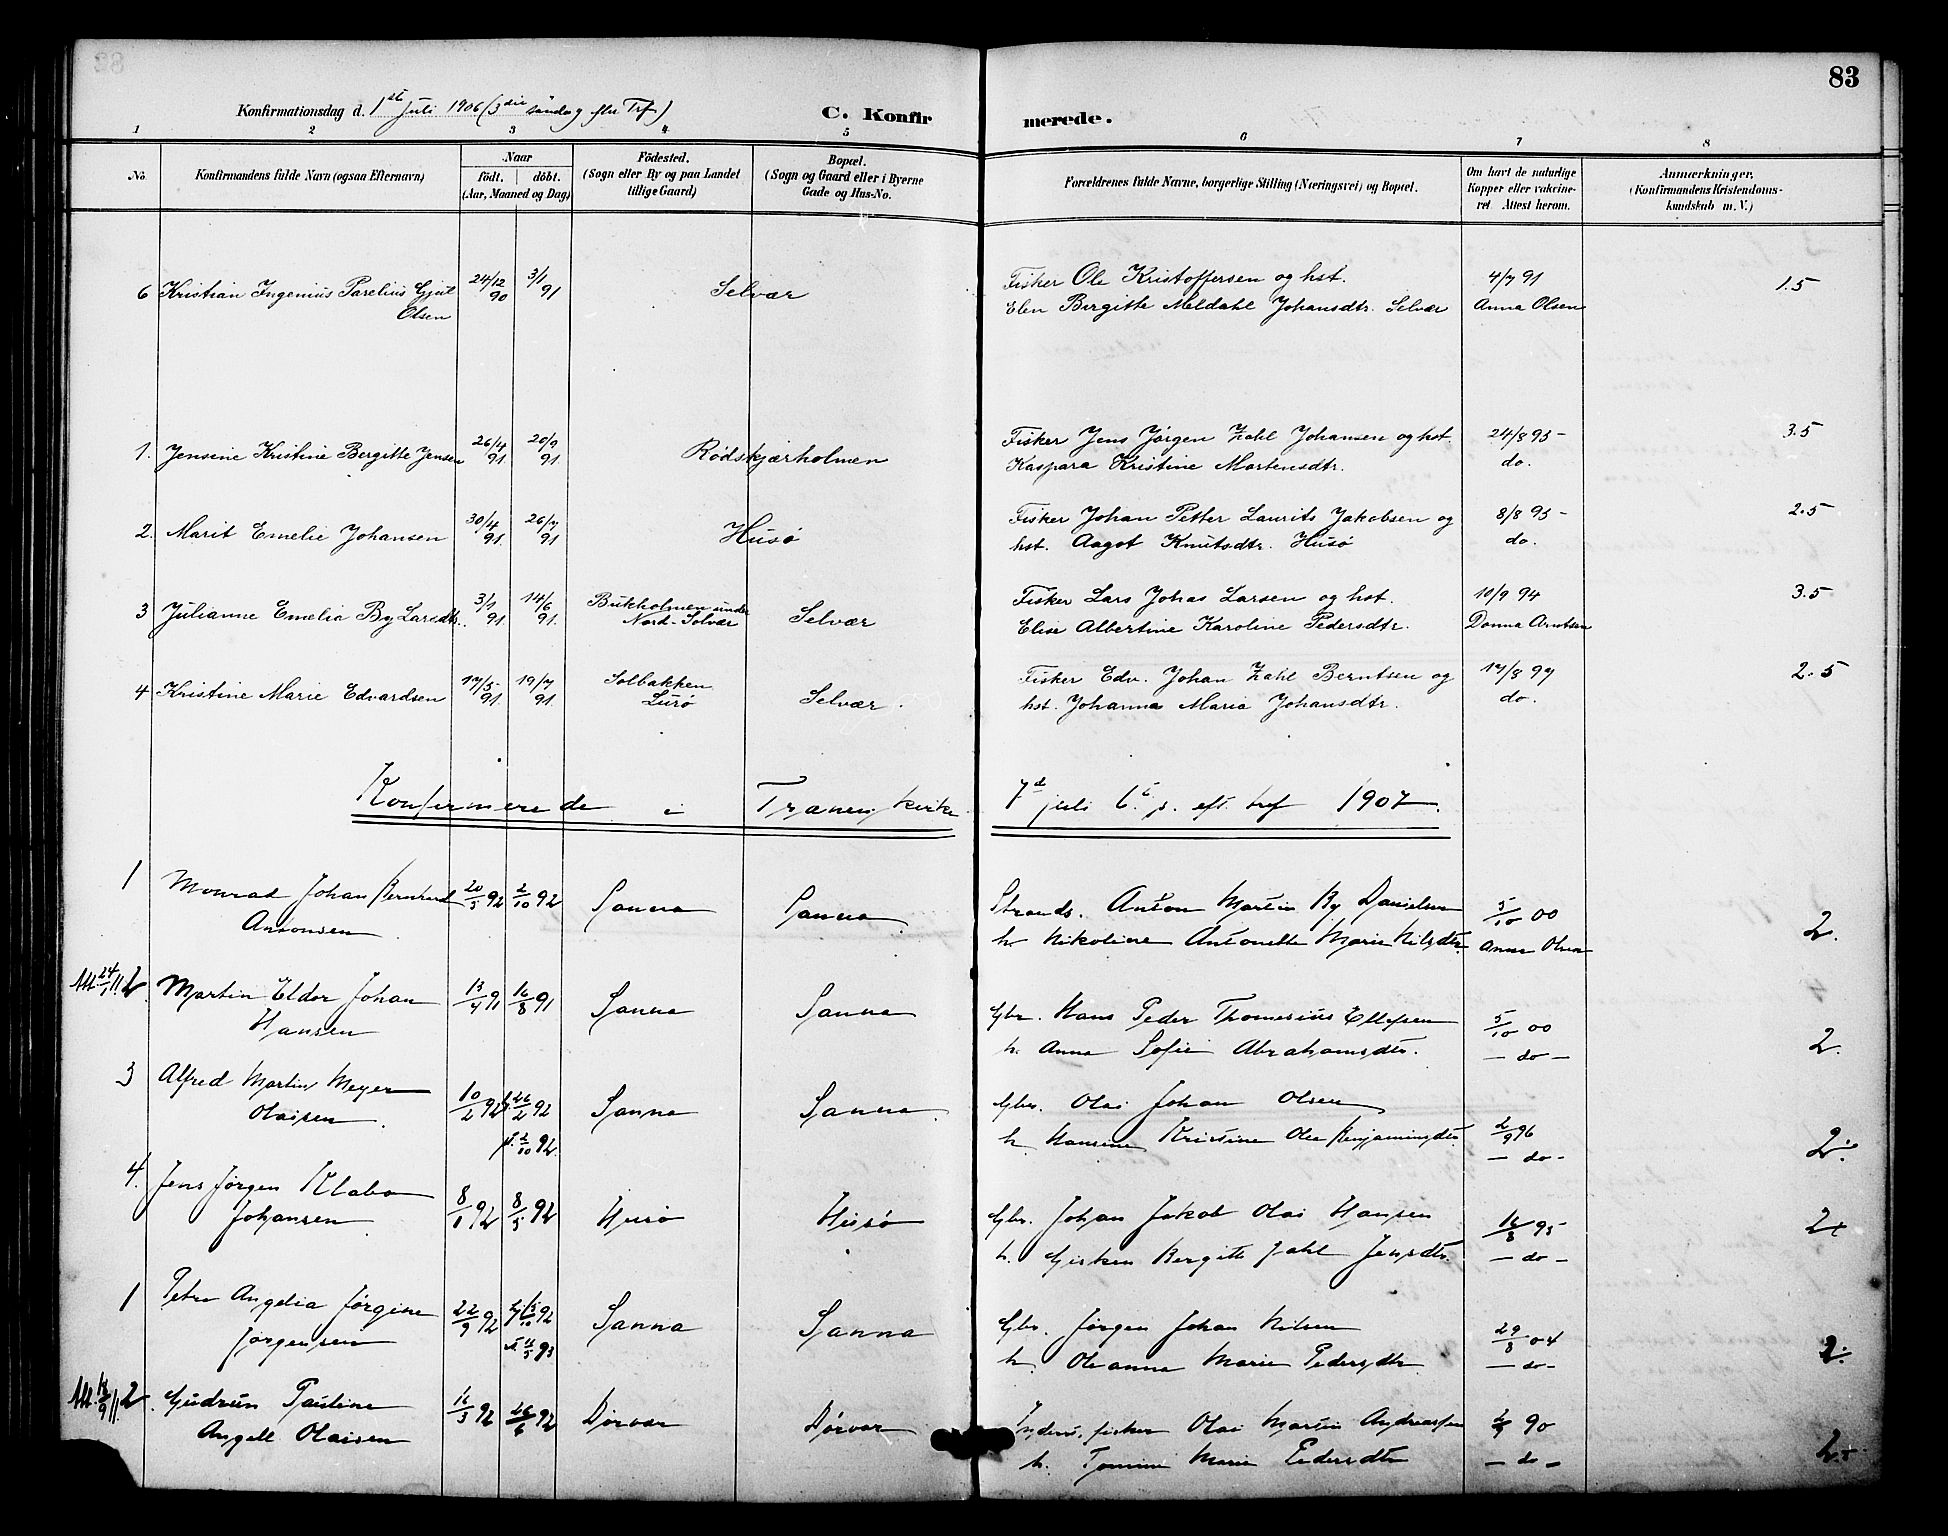 83
Konfirmationsdag d. 1ste Juli 1906 (3die søndag efter Trf.)
C. Konfirmerede.
1 2 3 4 5 6 7 8
No. Konfirmandens fulde Navn (ogsaa Efternavn) Naar født. døbt. (Aar, Maaned og Dag) Födested. (Sogn eller By og paa Landet tillige Gaard) Bopæl. (Sogn og Gaard eller i Byerne Gade og Hus-No. Forældrenes fulde Navne, borgerlige Stilling (Næringsvei) og Bopæl. Om havt de naturlige Kopper eller vakcineret. Attest herom. Anmærkninger. (Konfirmandens Kristendomskundskab m. V.)
6 Kristian Ingenius Parelius 24/12 90 3/1 91 Selvær Fisker Ole Kristoffersen og hst. 4/7 91 1.5
Olsen Elen Bergitte Meldahl Johansdtr. Selvær Anna Olsen
1. Jensine Kristine Bergitte Jensen 26/4 91 20/9 91. Rödskjærholmen Fisker Jens Jörgen Zahl Johansen og hst. 24/8 95 3.5
Kaspara Kristine Martensdtr. do.
2. Marit Emelie Johansen 30/4 91. 26/7 91 Husö Fisker Johan Petter Laurits Jakobsen og 8/8 95 2.5
hst. Aagot Knutsdtr. Husö do.
3 Julianne Emelia By Larsdtr. 3/1 91. 14/6 91. Bukholmen under Nord-Solvær Selvær Fisker Lars Johas Larsen og hst. 10/9 94 3.5
Elise Albertine Karoline Pedersdtr. Donna Arntsen
4 Kristine Marie Edvardsen 17/5 91. 19/7 91. Solbakken Lurö Selvær. Fisker Edv. Johan Zahl Berntsen og 17/8 97 2.5
hst. Johanna Maria Johansdtr. do.
Konfirmerede i Trænen kirke 7d juli 6te s. eft. tref 1907.
1 Monrad Johan Bernhard 20/5 92 2/10 92 Sanna Sanna Strands. Anton Martin By Danielsen 5/10 00 2.
Antonsen h. Nikoline Antonette Marie Nilsdtr. Anna Olsen
Att. 24/1 11. 2 Martin Eldor Johan 13/4 91 16/8 91 Sanna Sanna Gbr. Hans Peder Thomesius Ellefsen 5/10 00 2.
Hansen h. Anna Sofie Abrahamsdtr. — do —
3 Alfred Martin Meyer 10/2 92 26/2 92 Sanna Sanna Gbr. Olai Johan Olsen 2/9 96 2.
Olaisen. 2/10 92. h. Hansine Kristine Olea Benjaminsdtr. — do —
4. Jens Jörgen Klabo 8/1 92 8/5 92 Husö Husö Gbr. Johan Jakob Olai Hansen 16/8 95 2+
Johansen h. Gjerken Bergitte Zahl Jensdtr. — do —
1 Petra Angelia Jörgine 22/9 92 92 Sanna Sanna Gbr. Jörgen Johan Nilsen 29/8 04 2.
Jörgensen 93 h. Oleanna Marie Pedersdtr. — do —
Att. 18/9 11. 2. Gudrun Pauline 16/3 92 26/6 92 Dörvær Dörvær Inders. fisker Olai Martin Andreassen 90 2.
Angell Olaisen h. Marie Pedersdtr — do —